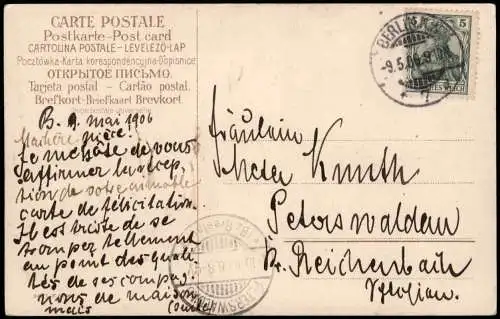 CARTE POSTALE
Postkarte-Post card
CARTOLINA POSTALE-LEVELEZŐ-LAP
Pocztówka-Karta korespondencyjna-Dopisnice
ОТКРЫТОЕ ПИСЬМО.
Tarjeta postal - Cartão postal.
Brefkort-Briefkaart Brevkort.
B. 9. mai 1906
Ma chère nièce!
Je me hâte de vous
affirmer la récep-
tion de votre aimable
carte de félicitation.
Il est triste de se
tromper tellement
au point des quali-
tés de ses compag-
nons de maison
mais (suite)
5
BERLIN
-9.5.06.
Fräulein
Knuth
Peterswaldau
Kr. Reichenbach
Schlesien.
PETERSWALDAU